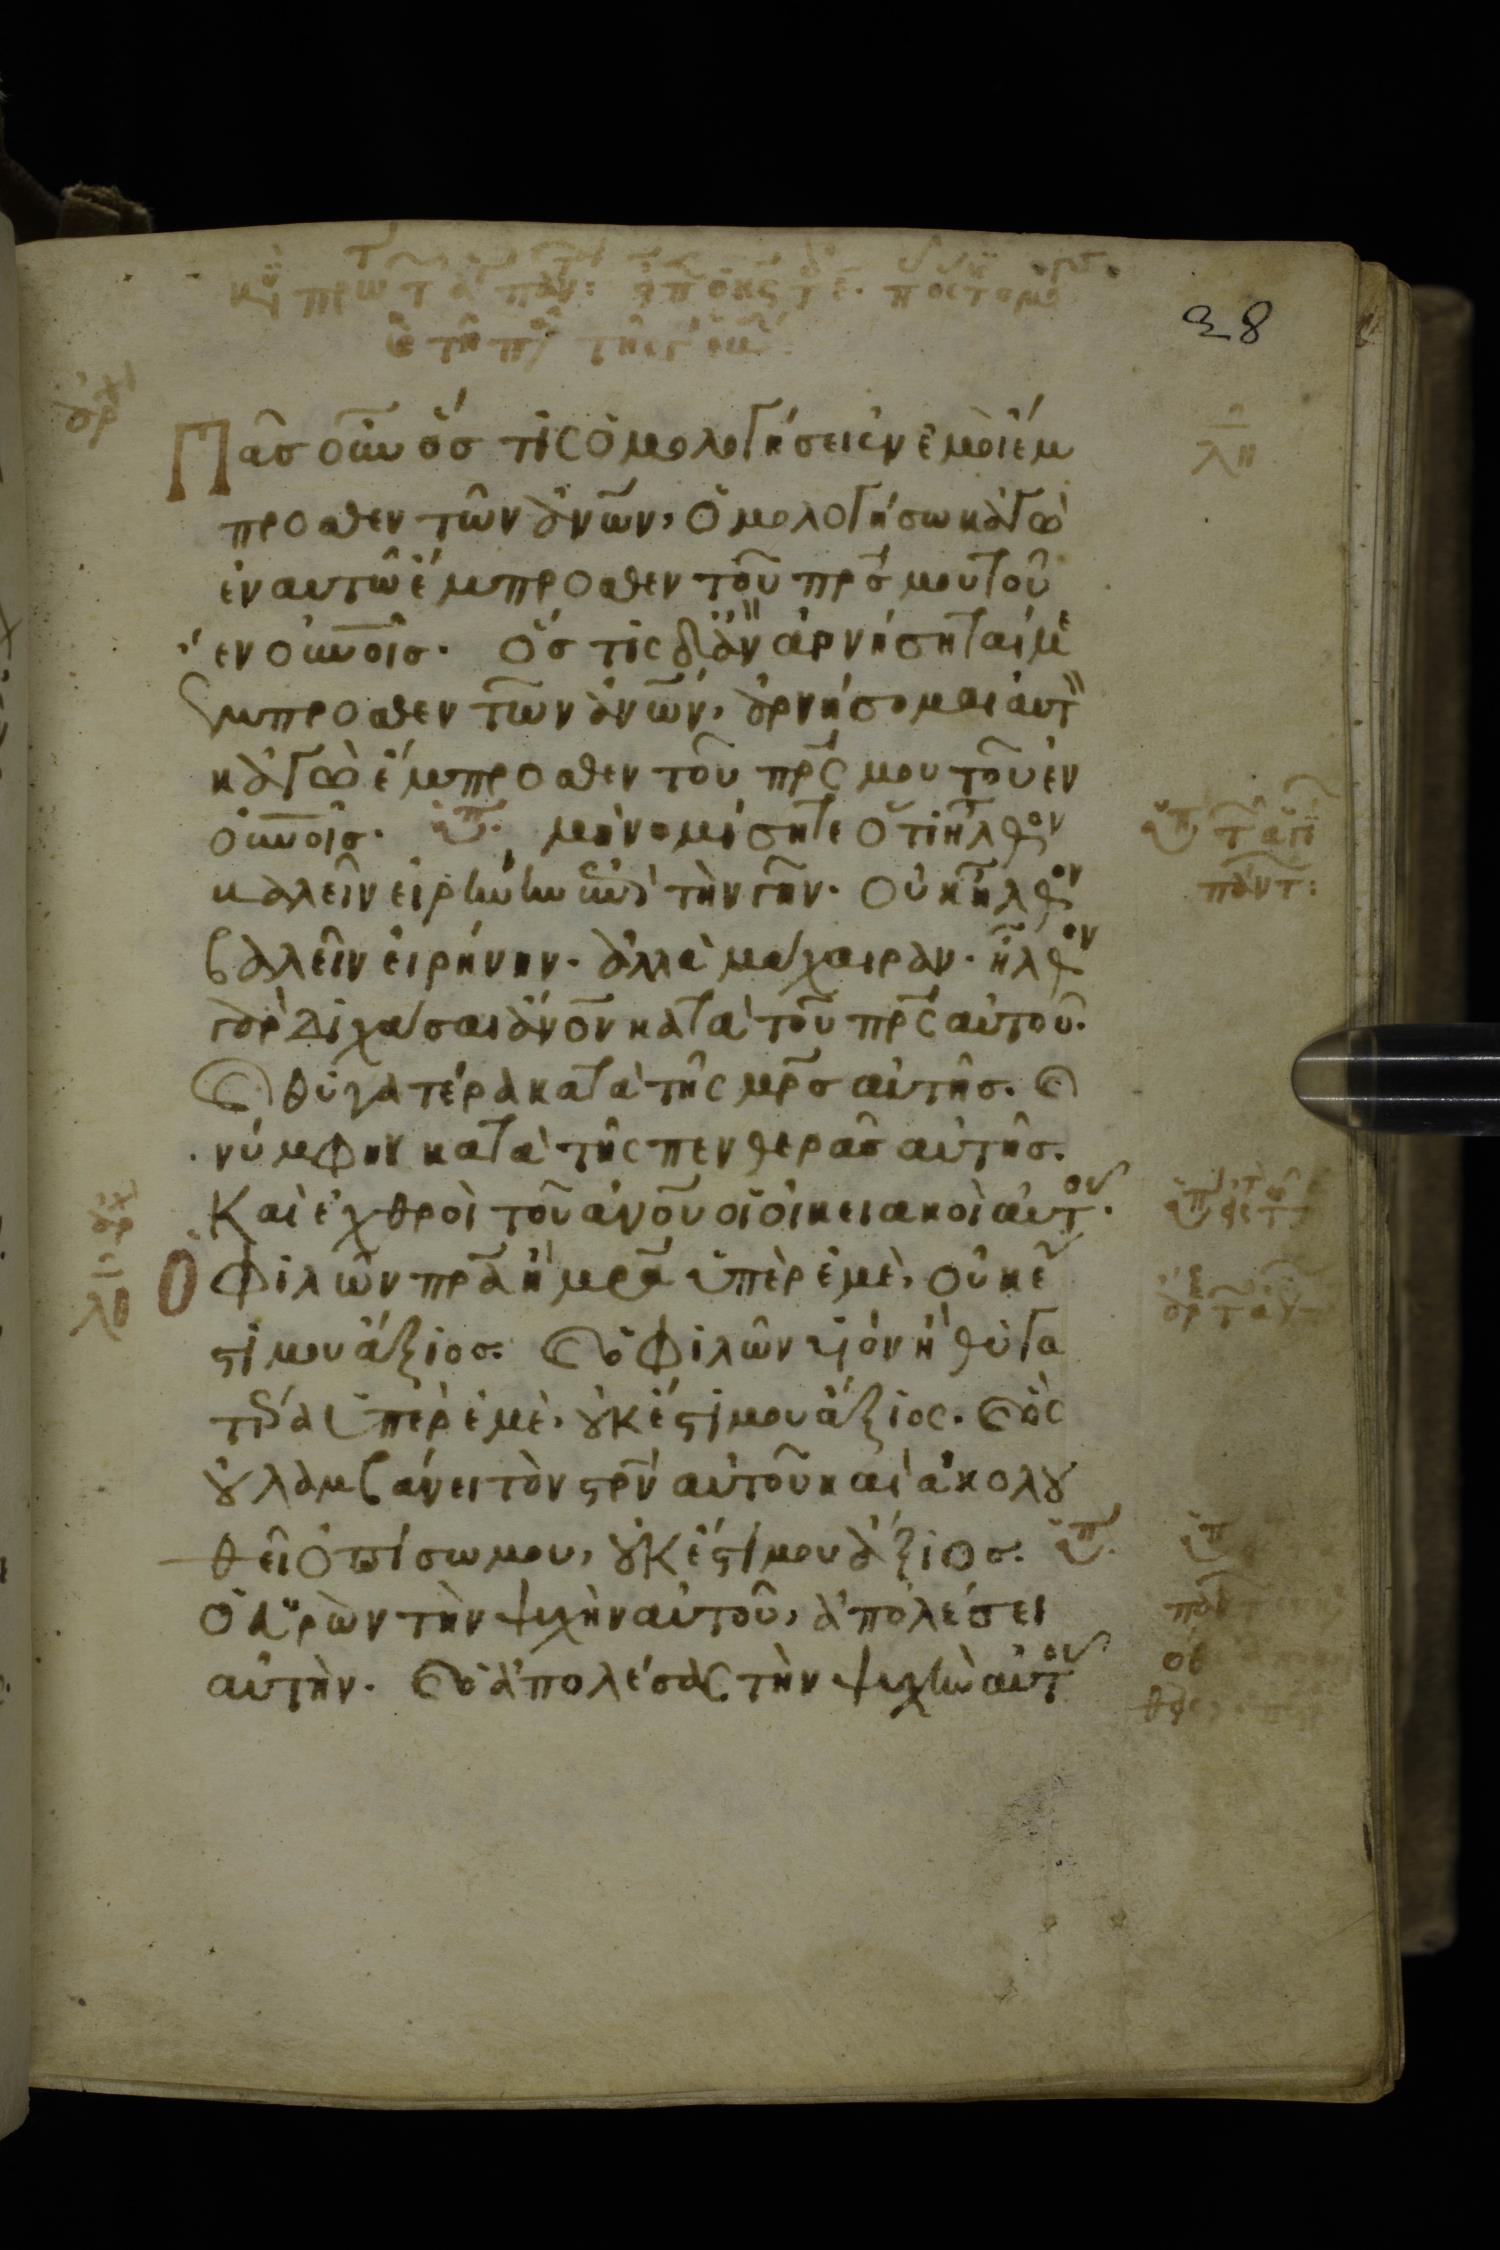 38
Πᾶσ οὖν ὅσ τὶς ὁμολογήσει ἐν ἐμοὶ ἔμ
προσθεν τῶν ἀνῶν, ὁμολογήσω κἀγὼ
ἐν αυτῶ ἔμπροσθεν τοῦ πρσ μου τοῦ
ἐν οὐνοῖσ. Ὅσ τὶς δἂν ἀρνήσηταί με
ἔμπροσθεν τῶν ἀνῶν, ἀρνήσομαι αὐτ
κἀγὼ ἔμπροσθεν τοῦ πρς μου τοῦ ἐν
οὐνοῖσ. μὴ νομίσητε ὅτι ἦλθον
βαλεῖν εἰρήνην ἐπὶ τὴν γῆν. Οὐκ ἦλθον
βαλεῖν εἰρήνην. ἀλλὰ μάχαιραν. ἦλθον
γὰρ διχάσαι ἄνον κατὰ τοῦ πρς αὐτοῦ.
Ϗ θυγατέρα κατὰ τῆς μρσ αὐτῆσ. ϗ
νύμφην κατὰ τῆς πενθερᾶσ αὐτῆσ.
Καὶ ἐχθροὶ τοῦ ανου οἱ οἰκειακοὶ αὐτου.
λθ Ὁ φιλῶν πρα ἢ μρα ὑπὲρ ἐμὲ, οὐκ ἔ
στι μου ἄξιοσ. ϗ ὁ φιλῶν υἱὸν ἢ θυγα
τέρα ὑπὲρ ἐμὲ, οὐκ ἔστι μου ἄξιος. ϗ ὃς
οὐ λαμβάνει τὸν στρν αὐτοῦ καὶ ἀκολου
θεῖ ὀπίσω μου, οὐκ ἔστι μου ἄξιοσ.
Ὁ εὑρὼν τὴν ψυχὴν αὐτοῦ, ἀπολέσει
αὐτὴν. ϗ ὁ ἀπολέσας τὴν ψυχὴν αὐτου
λη